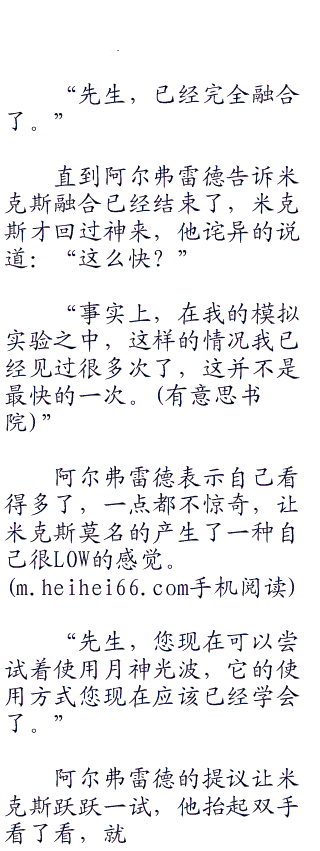 “先生，已经完全融合
了。”
直到阿尔弗雷德告诉米
克斯融合已经结束了，米克
斯才回过神来，他诧异的说
道：“这么快？”
“事实上，在我的模拟
实验之中，这样的情况我已
经见过很多次了，这并不是
最快的一次。(有意思书
院)”
阿尔弗雷德表示自己看
得多了，一点都不惊奇，让
米克斯莫名的产生了一种自
己很LOW的感觉。
(m.heihei66.com手机阅读)
“先生，您现在可以尝
试着使用月神光波，它的使
用方式您现在应该已经学会
了。”
阿尔弗雷德的提议让米
克斯跃跃一试，他抬起双手
看了看，就